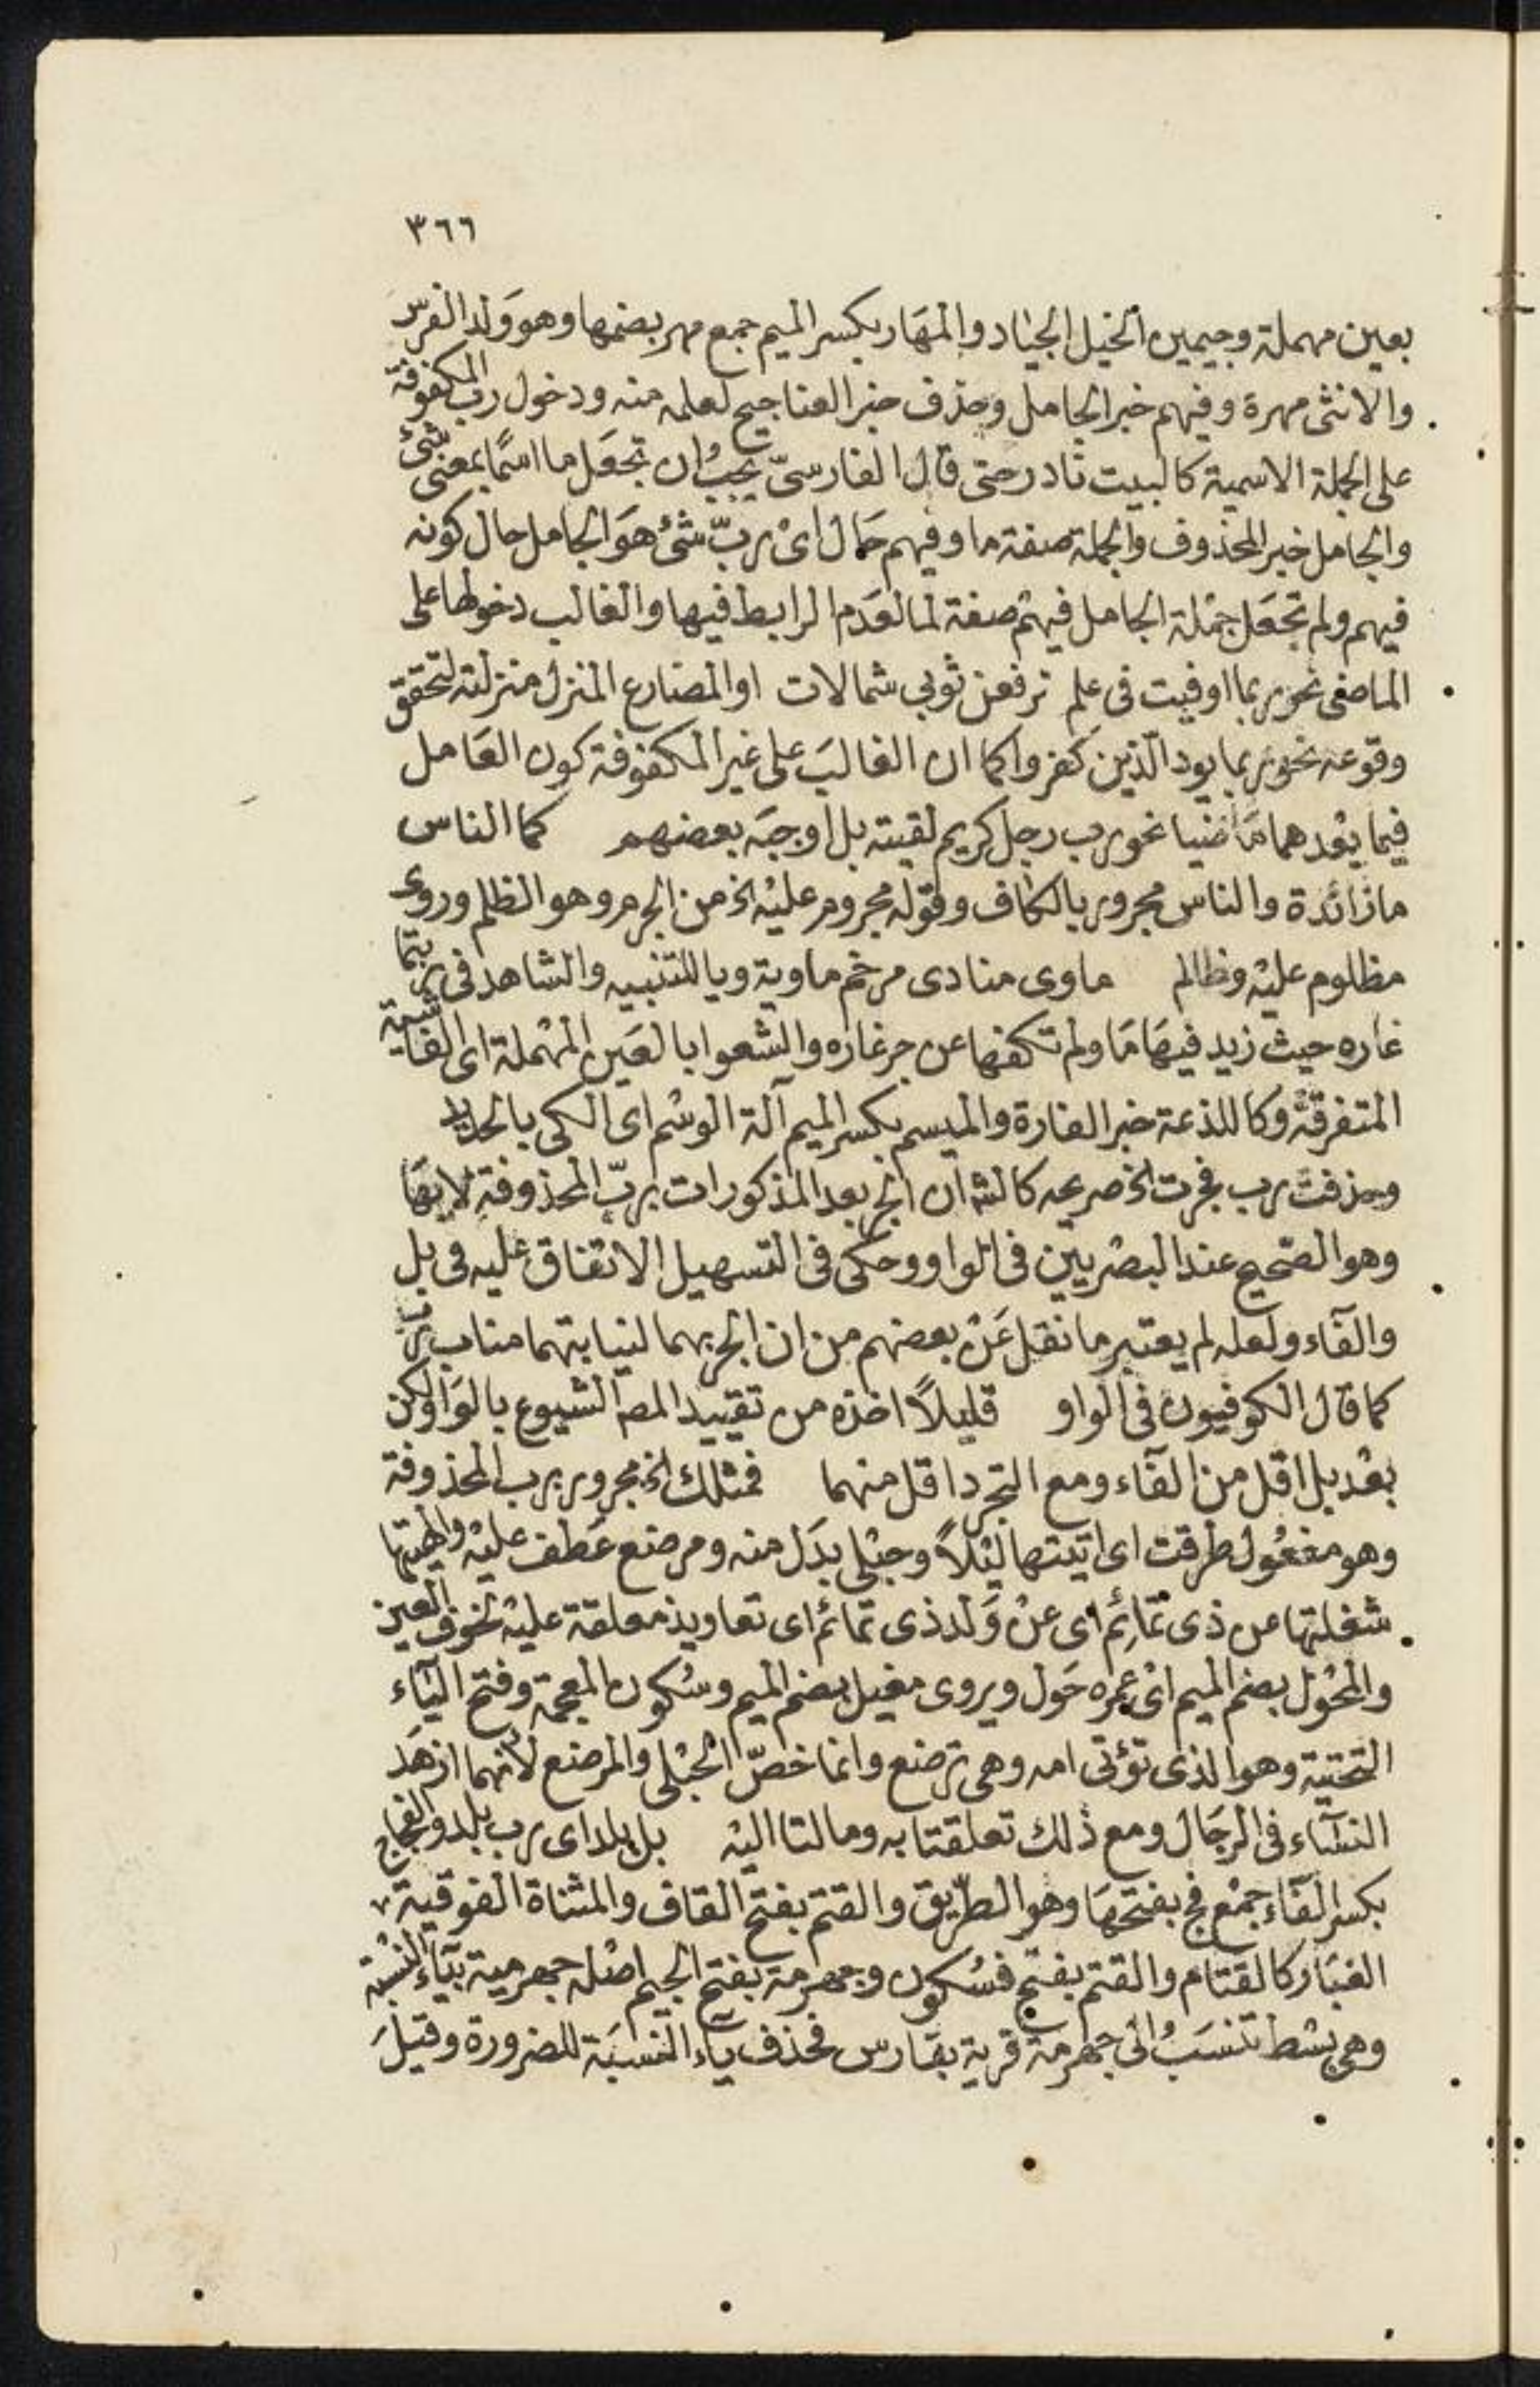 ٣٦٦
بعين مهملة وجيمين الخيل الجياد والمهَار بكسر الميم جمع مهر بضمها وهو وَلد الفرس
والانثى مهرة وفيهم خبر الجامل وحذف خبر العناجيج لعلمه منه ودخول رب المكفوفة
على الجملة الاسمية كالبيت نادر حتى قال الفارسىّ يجبُ ان تجعَل ما اسمًا بمعنى شئ
والجامل خبر المحذوف والجملة صفة ما وفيهم حَال اىْ ربّ شئ هوَ الجامل حال كونه
فيهم ولم تجعَل جملة الجامل فيهم صفة لما لعَدم الرابط فيها والغالب دخولها على
الماضى نحو ربما اوفيت فى علم ترفعن ثوبى شمالات او المضارع المنزل منزلته لتحقق
وقوعه نحو ربما يود الّذين كفروا كما ان الغالبَ على غير المكفوفة كون العَامل
فيما بعْدهما مَاضيا نحو رب رجل كريم لقيته بل اوجبَه بعضهم كما الناس
ما زائدة والناس مجرور بالكاف وقوله مجروم عليْه الخ من الجرم وهو الظلم وروى
مظلوم عليْه وظالم ماوى منادى مرخم ماوية ويا للتنبيه والشاهد فى ربتما
غاره حيث زيد فيهَا مَا ولم تكفها عن جر غاره والشعوا بالعَين المهْملة اى الفاشية
المتفرقة وكاللذعة خبر الغارة والميسم بكسر الميم آلة الوشْم اى الكى بالحديد
وحذفت رب فجرت الخ صريحه كالشه ان الجر بعد المذكورات بربّ المحذوفة لا بهَا
وهو الصّحيح عند البصْريين فى الواو وحكى فى التسهيل الاتفاق عليه فى بل
والفَاء ولعله لم يعتبر ما نقل عَنْ بعضهم من ان الجر بهما لنيابتهما مناب رب
كما قال الكوفيون فى الواو قليلاً اخذه من تقييد المصه الشيوع بالوَاو لكن
بعْد بل اقل من الفَاء ومع التجرد اقل منهما فمثلك الخ مجرور برب المحذوفة
وهو مفعُول طرقت اى اتيتها ليْلاً وحبْلى بدَل منه ومرضع عَطف عليْه والهيتها
شغلتها عن ذى تمائِم اى عنْ وَلد ذى تمائم اى تعاويذ معلقة عليْه لخوف العين
والمحْول بضم الميم اىْ عمره حَول ويروى مغيل بضم الميم وسُكون المعجمة وفتح اليَاء
التحتية وهو الذى تؤتى امه وهى ترضع وانما خصّ الحبْلى والمرضع لانهما ازهَد
النسَاء فى الرجَال ومع ذلك تعلقتا به ومالتا اليْه بل بلد اى رب بلد والفجاج
بكسر الفَاء جمْع فج بفتحهَا وهو الطّريق والقتم بفتح القاف والمثناة الفوقية
الغبَار كالقتام والقتم بفتح فسُكون وجهرمة بفتح الجيم اصْله جهرمية بيَاء النسْبة
وهى بسْط تنسَبُ الى جهرمة قرية بفارس فحذف يَاء النسبَة للضرورة وقيلَ